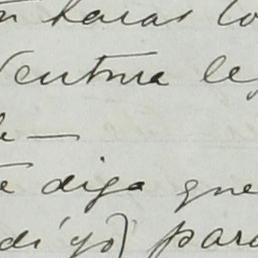 n haras lo
Ventura le
le —
te diga que
di yo) para